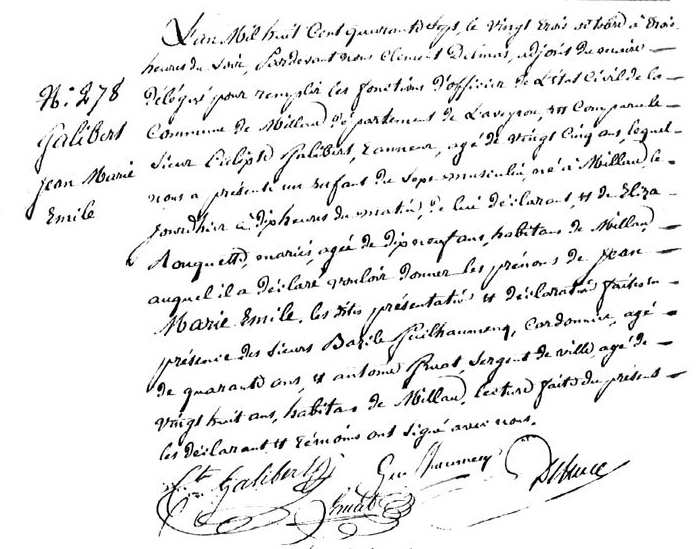 N.° 278
Galibert
Jean Marie
Emile
L'an Mil huit Cent quarante Sept, le vingt trois octobre à trois
heures du Soir, Pardevant nous Clement Delmas, adjoint du maire
délégué pour remplir les fonctions d'officier de L'Etat Civil de la
Commune de Millau Département de L'aveyron, est Comparu le
Sieur Galibert, tanneur, agé de vingt Cinq ans, lequel
nous a présenté un Enfant du Sexe masculin, né à Millau, le
jourdhier à dix heures du matin, de lui déclarant, et de Eliza
Rouquette, mariés, agée de dix neuf ans, habitans de Millau,
auquel il a déclaré vouloir donner les prénoms de Jean
Marie Emile. les dites présentation et déclaration faites en
présence des Sieurs Bazile Guilhaumenq, Cordonnier, agé
de quarante ans, et antoine Gruat, Sergent de ville, agé de
vingt huit ans, habitans de Millau. lecture faite du présent
les déclarant et témoins ont signé avec nous.
Galibert
Guilhaumenq
Gruat